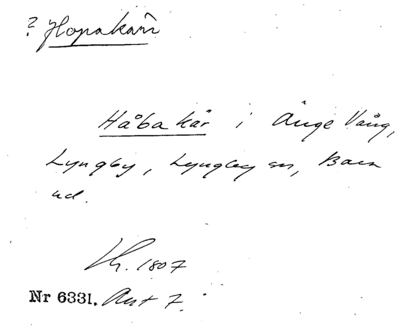 ? Hopakarr
Håbakår i Änge Vång,
Lyngby, Lyngby sn, Bara
hd.
Lh. 1807
Nr 6331. Akt 7.